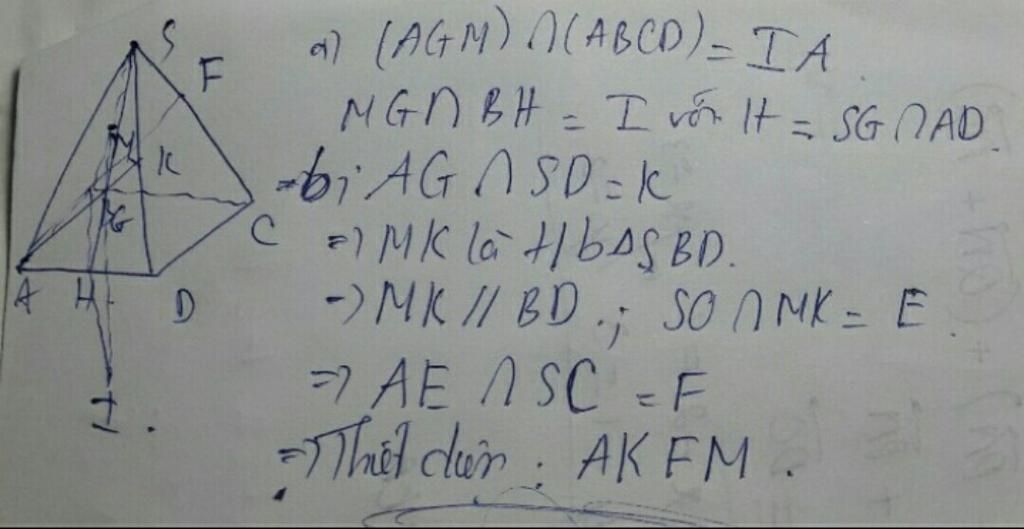 S
F
M
K
G
C
A H D
I.
a) (AGM) ∩ (ABCD) = IA.
MG ∩ BH = I với H = SG ∩ AD.
b; AG ∩ SD = K
=> MK là đ/b Δ SBD.
-> MK // BD.; SO ∩ MK = E.
=> AE ∩ SC = F
=> Thiết diện: AKFM.